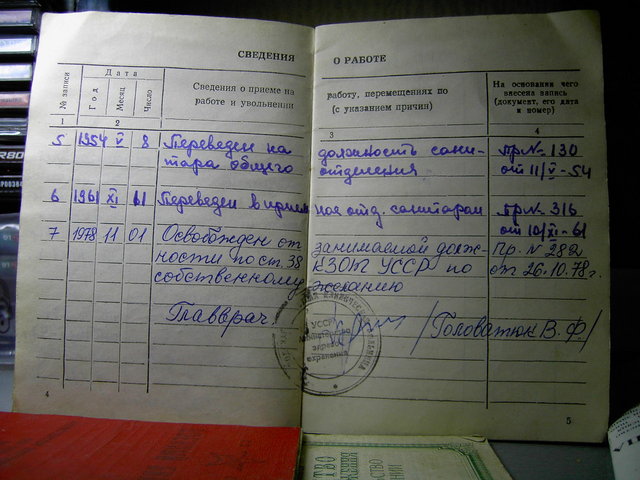 СВЕДЕНИЯ О РАБОТЕ
№ записи
Дата
Год
Месяц
Число
Сведения о приеме на работу, перемещениях по
работе и увольнении (с указанием причин)
На основании чего
внесена запись
(документ, его дата
и номер)
1 2 3 4
5 1954 V 8 Переведен на должность сани- Пр № 130
тара общего отделения от 11/V-54
6 1961 XI 11 Переведен в приемное отд. санитаром Пр № 316
от 10/XI-61
7 1978 11 01 Освобожден от занимаемой долж- Пр. № 282
ности по ст. 38 КЗОТ УССР по от 26.10.78 г.
собственному желанию
Главврач. /Головатюк В. Ф./
УССР
Министерство
здраво-
охранения
4 5